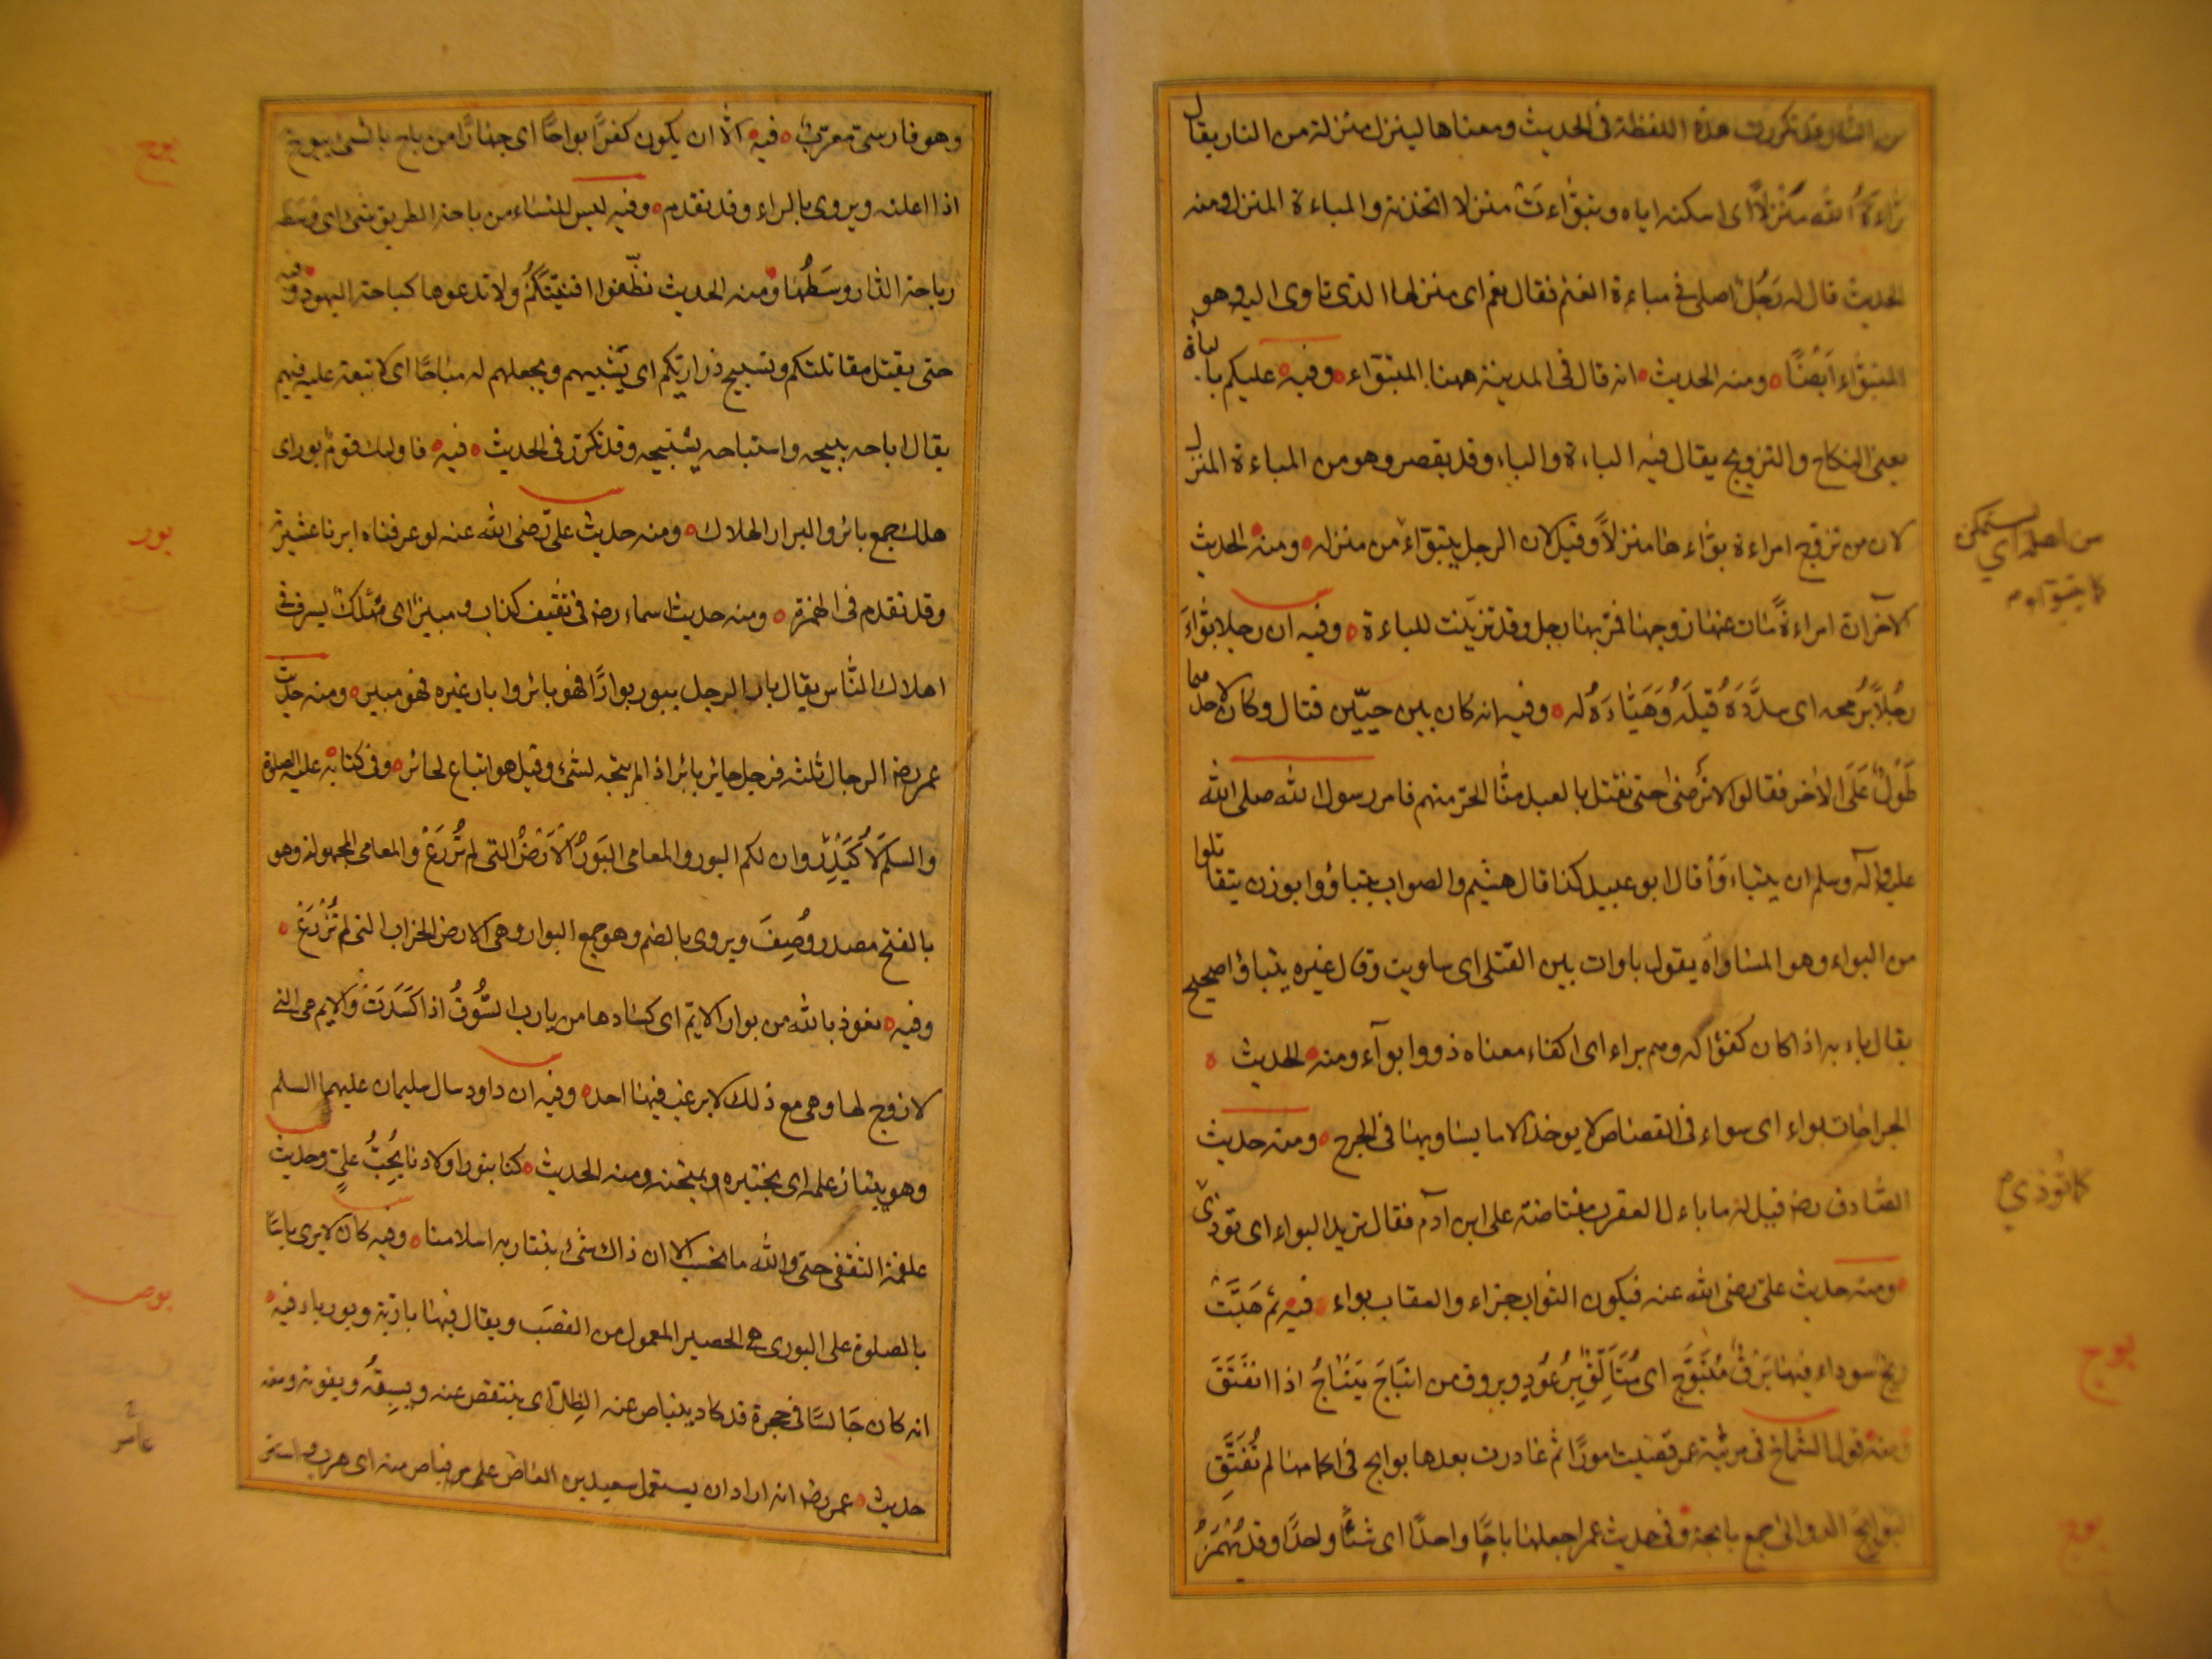 من النار قد تكررت هذه اللفظة فى الحديث ومعناها لينزل منزلة من النار يقال
بوّاءه الله منزلاً اى اسكنه اياه وتبوّاءت منزلا اتخذته والمباءة المنزل ومنه
الحديث قال له رجل اصلى فى مباءة الغنم فقال نعم اى منزلها الذى تاوى اليه وهو
المتبوّاء ايضًا ومنه الحديث انه قال فى المدينة ههنا المتبوّاء وفيه عليكم بالباءة
يعنى النكاح والتزويج يقال فيه الباءة والباء وقد يقصر وهو من المباءة المنزل
لان من تزوج امراءة بوّاءها منزلاً وقيل لان الرجل يتبوّاء من منزله ومنه الحديث
من اهله اي يستمكن
كما يتبوّاء م
الآخر ان امراءة مات عنها زوجها فمرّ بها رجل وقد تزيّنت للباءة وفيه ان رجلا بوّاء
رجلاً برمحه اى سدّده قبله وهيّاءه له وفيه انه كان بين حيّين قتال وكان لاحدهما
طَوْلٌ على الآخر فقالوا لا نرضى حتى نقتل بالعبد منّا الحرّ منهم فامر رسول الله صلى الله
عليه وآله وسلم ان يتباءوا قال ابو عبيد كذا قال هشيم والصواب يتباؤوا بوزن يتقاتلوا
من البواء وهو المساواة يقول باوات بين القتلى اى ساويت وقال غيره يتباؤا صحيح
يقال باء به اذا كان كفؤا له وهم براء اى اكفاء معناه ذووا بوآء ومنه الحديث
الجراحات بواء اى سواء فى القصاص لا يوخذ الا ما يساويها فى الجرح ومنه حديث
الصّادق رضه قيل له ما بال العقرب مغتاضة على ابن آدم فقال تريد البواء اى توذى
كما توذي م
ومنه حديث علىّ رضى الله عنه فيكون الثواب جزاء والعقاب بواء فيه ثم هبّت
ريح سوداء فيها برق متبوّج اى متألّق برعود وبروق من انباج ينباج اذا انفتق
بوج
ومنه قول الشماخ فى مرثية عمر قضيت امورًا ثم غادرت بعدها بوايج فى اكمامها لم تُفتَّق
البوايج الدواهى جمع بايجة وفى حديث عمر اجعلها باجًا واحدًا اى شئًا واحدًا وقد يهمز
وهو فارسى معرب فيه الّا ان يكون كفرًا بواحًا اى جهارًا من باح بالشئ يبوح
بوح
اذا اعلنه ويروى بالراء وقد تقدم وفيه ليس للنساء من باحة الطريق شئ اى وسطه
وباحة الدّار وسطها ومنه الحديث نظّفوا افنيتكم ولا تدعوها كباحة اليهود وفيه
حتى يقتل مقاتلتكم وتستبيح ذراريكم اى يسبيهم ويجعلهم له مباحًا اى لا تبعة عليه فيهم
يقال اباحه يبيحه واستباحه يستبيحه وقد تكرر فى الحديث فيه فاولئك قوم بور اى
هلك جمع بائر والبوار الهلاك ومنه حديث علىّ رضى الله عنه لو عرفناه ابرنا عشيرته
بور
وقد تقدم فى الهمزة ومنه حديث اسماء رضه فى ثقيف كذاب ومبير اى مهلك يسرف فى
اهلاك النّاس يقال بار الرجل يبور بوارًا فهو بائر وابار غيره فهو مبير ومنه حديث
عمر رضه الرجال ثلثه فرجل حائر بائر اذا لم يتجه لشئ وقيل هو اتباع لحائر وفى كتابه عليه الصلوة
والسلم لاكيدر وان لكم البور والمعامى البور الارض التى لم تزرع والمعامى المجهولة وهو
بالفتح مصدر وصف ويروى بالضم وهو جمع البوار وهى الارض الخراب التى لم تزرع
وفيه نعوذ بالله من بوار الايّم اى كسادها من بارت السوق اذا كسدت والايم هى التى
لا زوج لها وهى مع ذلك لا يرغب فيها احد وفيه ان داود سال سليمان عليهما السلم
وهو يبتار علمه اى يختبره ويمتحنه ومنه الحديث كنا نبور اولادنا بحُبّ علىّ وحديث
علقمة الثقفى حتى والله ما نحسب الا ان ذاك شئ يبتار به اسلامنا وفيه كان لا يرى باسًا
بالصلوة على البورى هى الحصير المعمول من القصب ويقال فيها بارية وبورياء فيه
بوص
انه كان جالسًا فى حجرة قد كاد ينباص عنه الظل اى ينتقص عنه ويسبقه ويفوته ومنه
حديث عمر رضه انه اراد ان يستعمل سعيد بن العاص على فباص منه اى هرب واستتر